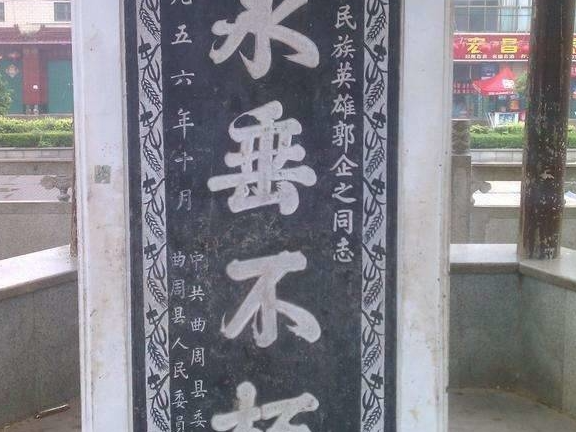 民族英雄郭企之同志
永垂不朽
元五六年十月
中共曲周县委
曲周县人民委員
宏昌